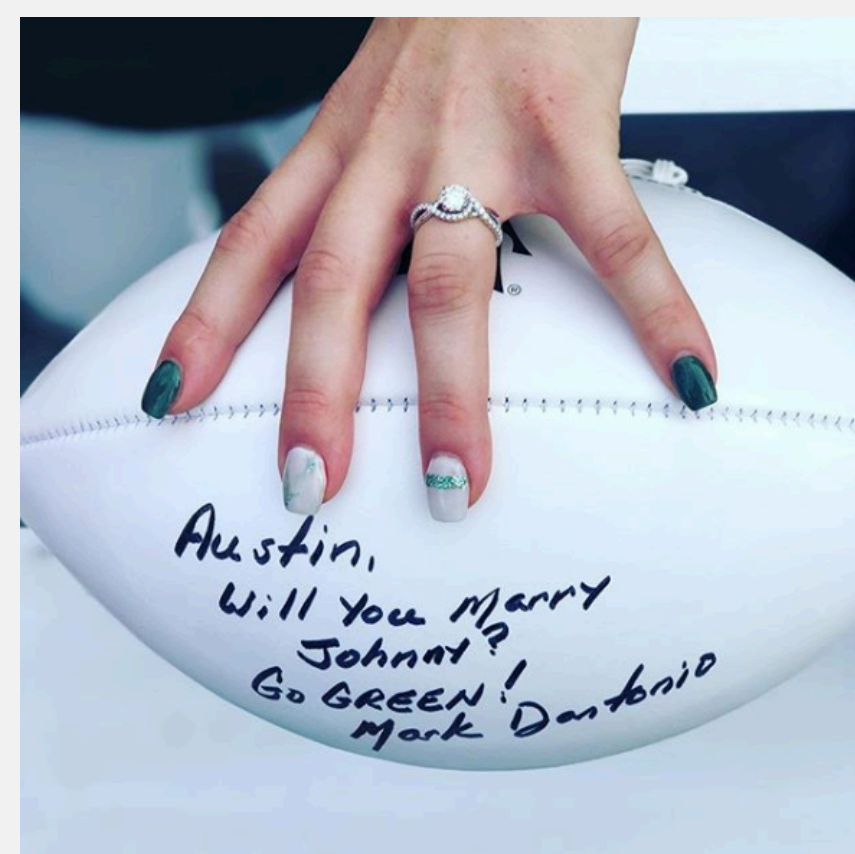 ®
Austin,
Will You Marry
Johnny?
Go GREEN!
Mark Dantonio